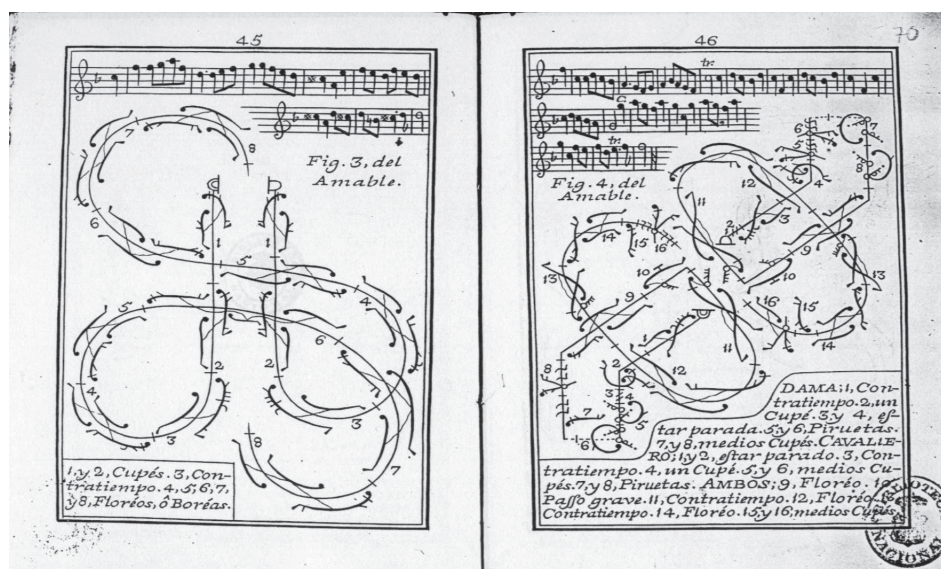 45
Fig. 3, del
Amable.
8
7
6
1
1
5
5
4
4
6
2
2
3
3
7
8
1, y 2, Cupés. 3, Con-
tratiempo. 4, 5, 6, 7,
ÿ 8, Floréos, ô Boréas.
46
70
tr.
C
tr.
Fig. 4, del
Amable.
6
5
7
8
4
12
11
3
2
1
9
10
14
15
16
13
10
9
13
16
15
14
11
12
8
7
6
2
3
4
5
DAMA; 1, Con-
tratiempo. 2, un
Cupé. 3 y 4, eſ-
tar parada. 5 y 6, Piruetas.
7, y 8, medios Cupés. CAVALIE-
RO; 1, y 2, eſtar parado. 3, Con-
tratiempo. 4, un Cupé. 5, y 6, medios Cu-
pés. 7, y 8, Piruetas. AMBOS; 9, Floréo. 10
Paſſo grave. 11, Contratiempo. 12, Floréo.
Contratiempo. 14, Floréo. 15, y 16, medios Cupés.
NACIONAL